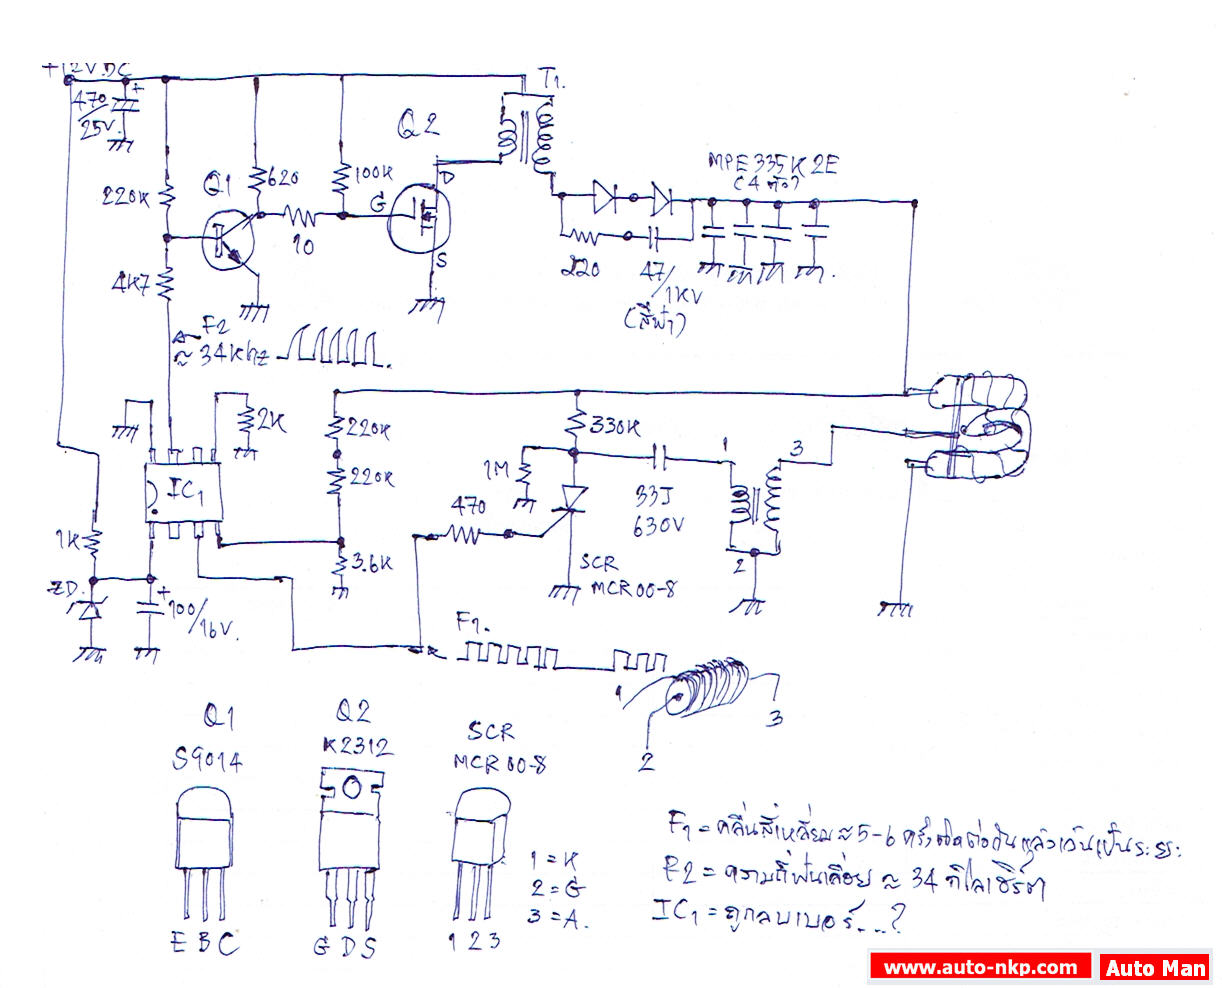 +12V.DC
470/25V.
220K
Q1
620
100K
Q2
T1.
G
D
S
10
4K7
MPE 335K 2E
(4 ตัว)
220
47/1KV
(สีฟ้า)
F2
≈ 34Khz
2K
IC1
220K
220K
3.6K
330K
1M
470
33J
630V
1
3
2
SCR
MCR00-8
1K
ZD.
100/16V.
F1.
1
2
3
Q1
S9014
E B C
Q2
K2312
G D S
SCR
MCR00-8
1 = K
2 = G
3 = A.
1 2 3
F1 = คลื่นสี่เหลี่ยม ≈ 5-6 ครั้งติดต่อกันแล้วเว้นเป็นระยะ
F2 = ความถี่ฟันเลื่อย ≈ 34 กิโลเฮิร์ต
IC1 = ถูกลบเบอร์....?
www.auto-nkp.com
Auto Man